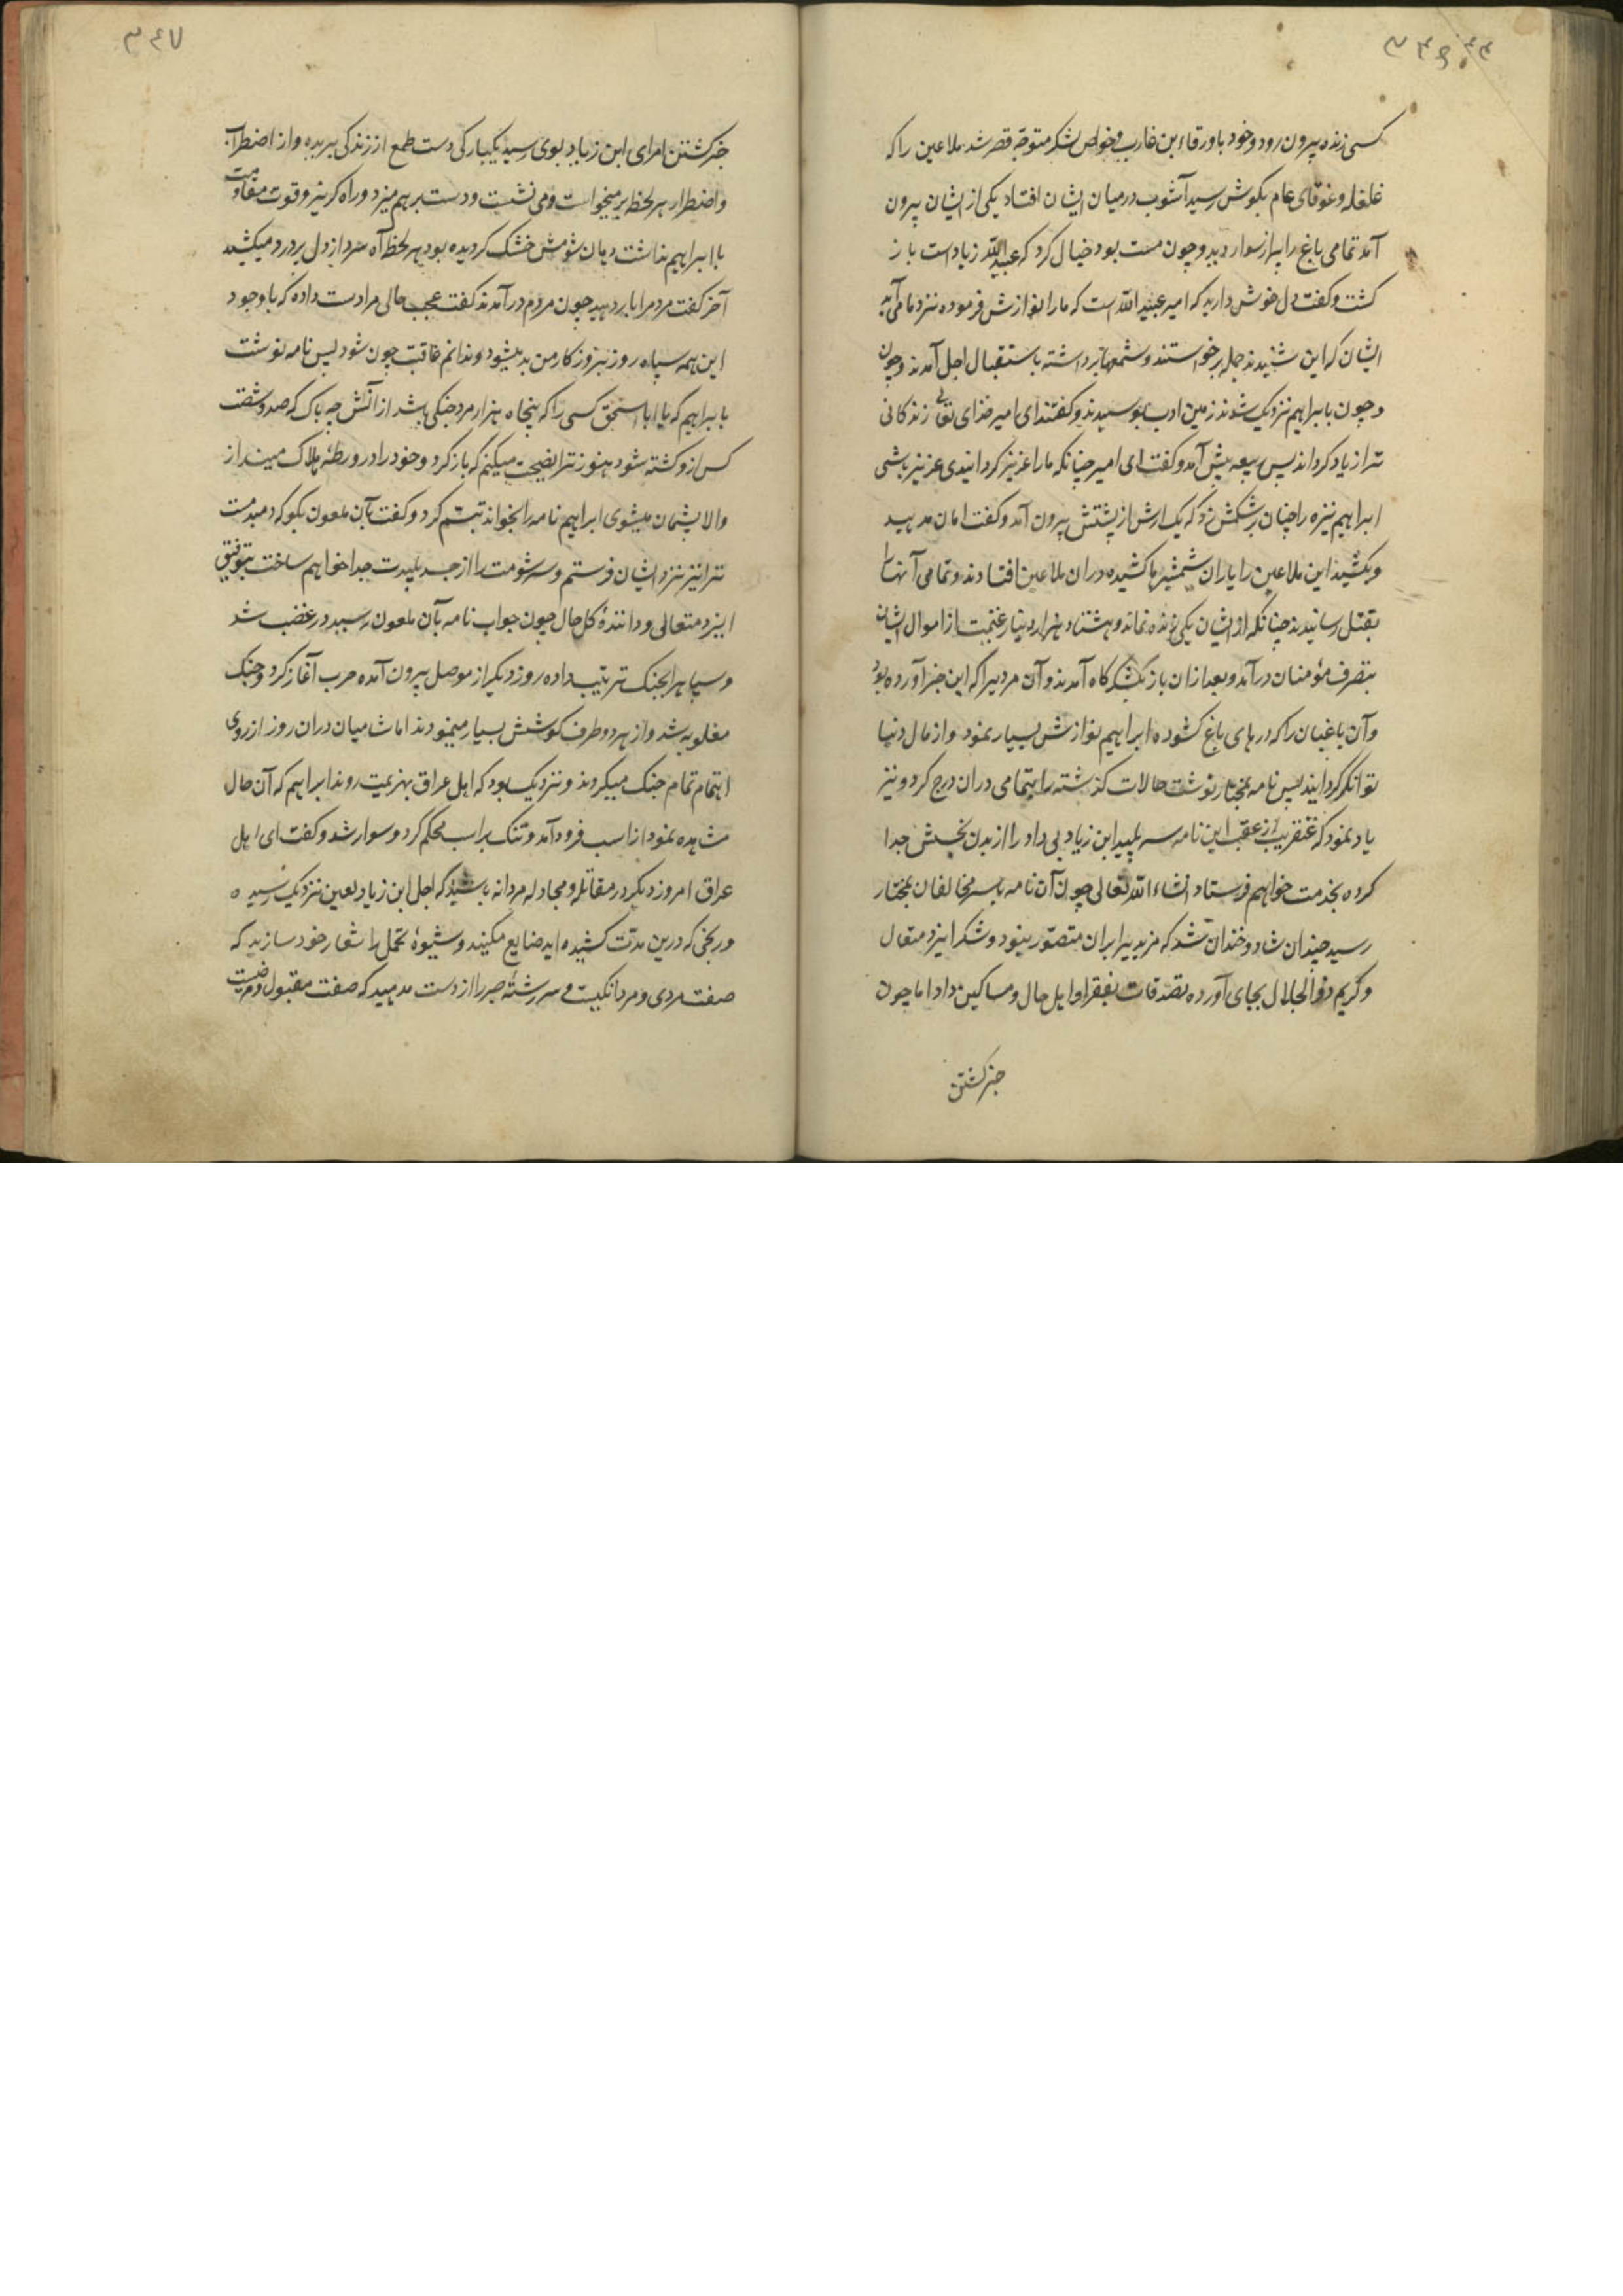 ۳۴۶
کسی زنده بیرون رود و خود با ورقاء بن غارب و خواص لشکر متوجّه قصر شد ملاعین را که
غلغله و غوغای عام بگوش رسید آشوب در میان ایشان افتاد یکی از ایشان بیرون
آمد تمامی باغ را پر از سوار دید و چون مست بود خیال کرد که عبید اللّه زیاد است باز
کشت و کفت دل خوش دارید که امیر عبید اللّه است که ما را نوازش فرموده نزد ما می آید
ایشان که این شنیدند جمله برخواستند و شمعها برداشته باستقبال اجل آمدند و چون
و چون بابراهیم نزدیک شدند زمین ادب بوسیدند و کفتند ای امیر خدای تعالی زندکانی
ترا زیاد کرداند پس ربیعه پیش آمد و کفت ای امیر چنانکه ما را عزیز کردانیدی عزیز باشی
ابراهیم نیزه را چنان بر شکمش زد که یک ارش از پشتش بیرون آمد و کفت امان مدهید
و بکشید این ملاعین را یاران شمشیرها کشیده در ان ملاعین افتادند و تمامی آنها را
بقتل رسانیدند چنانکه از ایشان یکی زنده نماند و هشتاد هزار دینار غنیمت از اموال ایشان
بتصرف مؤمنان در آمد و بعد ازان باز بلشکرکاه آمدند و آن مردیرا که این خبر آورده بود
و آن باغبان را که درهای باغ کشوده ابراهیم نوازش بسیار نمود و از مال دنیا
توانکر کردانید پس نامه بمختار نوشت حالات کذشته را بتمامی دران درج کرد و نیز
یاد نمود که عنقریب از عقب این نامه سر پلید ابن زیاد بی داد را از بدن نجسش جدا
کرده بخدمت خواهم فرستاد انشاء اللّه تعالی چون آن نامه با سر مخالفان بمختار
رسید چندان شاد و خندان شد که مزید بر ان متصوّر نبود و شکر ایزد متعال
و کریم ذو الجلال بجای آورده تصدقات بفقرا و اهل حال و مساکین داد اما چون
خبر کشتن
۳۴۷
خبر کشتن امرای ابن زیاد بوی رسید یکبارکی دست طمع از زندکی ببریده و از اضطراب
و اضطرار هر لحظه بر میخواست و می نشست و دست بر هم میزد و راه کریز و قوت مقاومت
با ابراهیم نداشت دهان شومش خشک کردیده بود هر لحظه آه سرد از دل پر درد میکشید
آخر کفت مردم را بار دهید چون مردم در آمدند کفت عجب حالی مرا دست داده که با وجود
این همه سپاه روز بروز کار من بد میشود و ندانم عاقبت چون شود پس نامه نوشت
بابراهیم که یا ابا اسحق کسی را که پنجاه هزار مرد جنکی باشد از آنش چه باک که صد و شصت
کس ازو کشته شود هنوز ترا نصیحت میکنم که باز کرد و خود را در ورطهٔ هلاک مینداز
و الا پشمان میشوی ابراهیم نامه را بخواند تبسّم کرد و کفت بآن ملعون بکو که دمبدمت
ترا نیز نزد ایشان فرستم و سر شومت را از جسد پلیدت جدا خواهم ساخت بتوفیق
ایزد متعالی و دانندهٔ کل حال چون جواب نامه بآن ملعون رسید در غضب شد
و سپاه را بجنک ترتیب داده روز دیکر از موصل بیرون آمده حرب آغاز کرد و جنک
مغلوبه شد و از هر دو طرف کوشش بسیار مینمودند اما شامیان دران روز از روی
اهتمام تمام جنک میکردند و نزدیک بود که اهل عراق بهزیمت روند ابراهیم که آن حال
مشاهده نمود از اسب فرود آمد و تنک بر اسب محکم کرد و سوار شد و کفت ای اهل
عراق امروز دیکر در مقاتله و مجادله مردانه باشید که اجل ابن زیاد لعین نزدیک رسیده
و رنجی که درین مدّت کشیده اید ضایع مکنید و شیوهٔ تحمل را شعار خود سازید که
صفت مردی و مردانکیست و سر رشتهٔ صبر را از دست مدهید که صفت مقبول و مرضیست